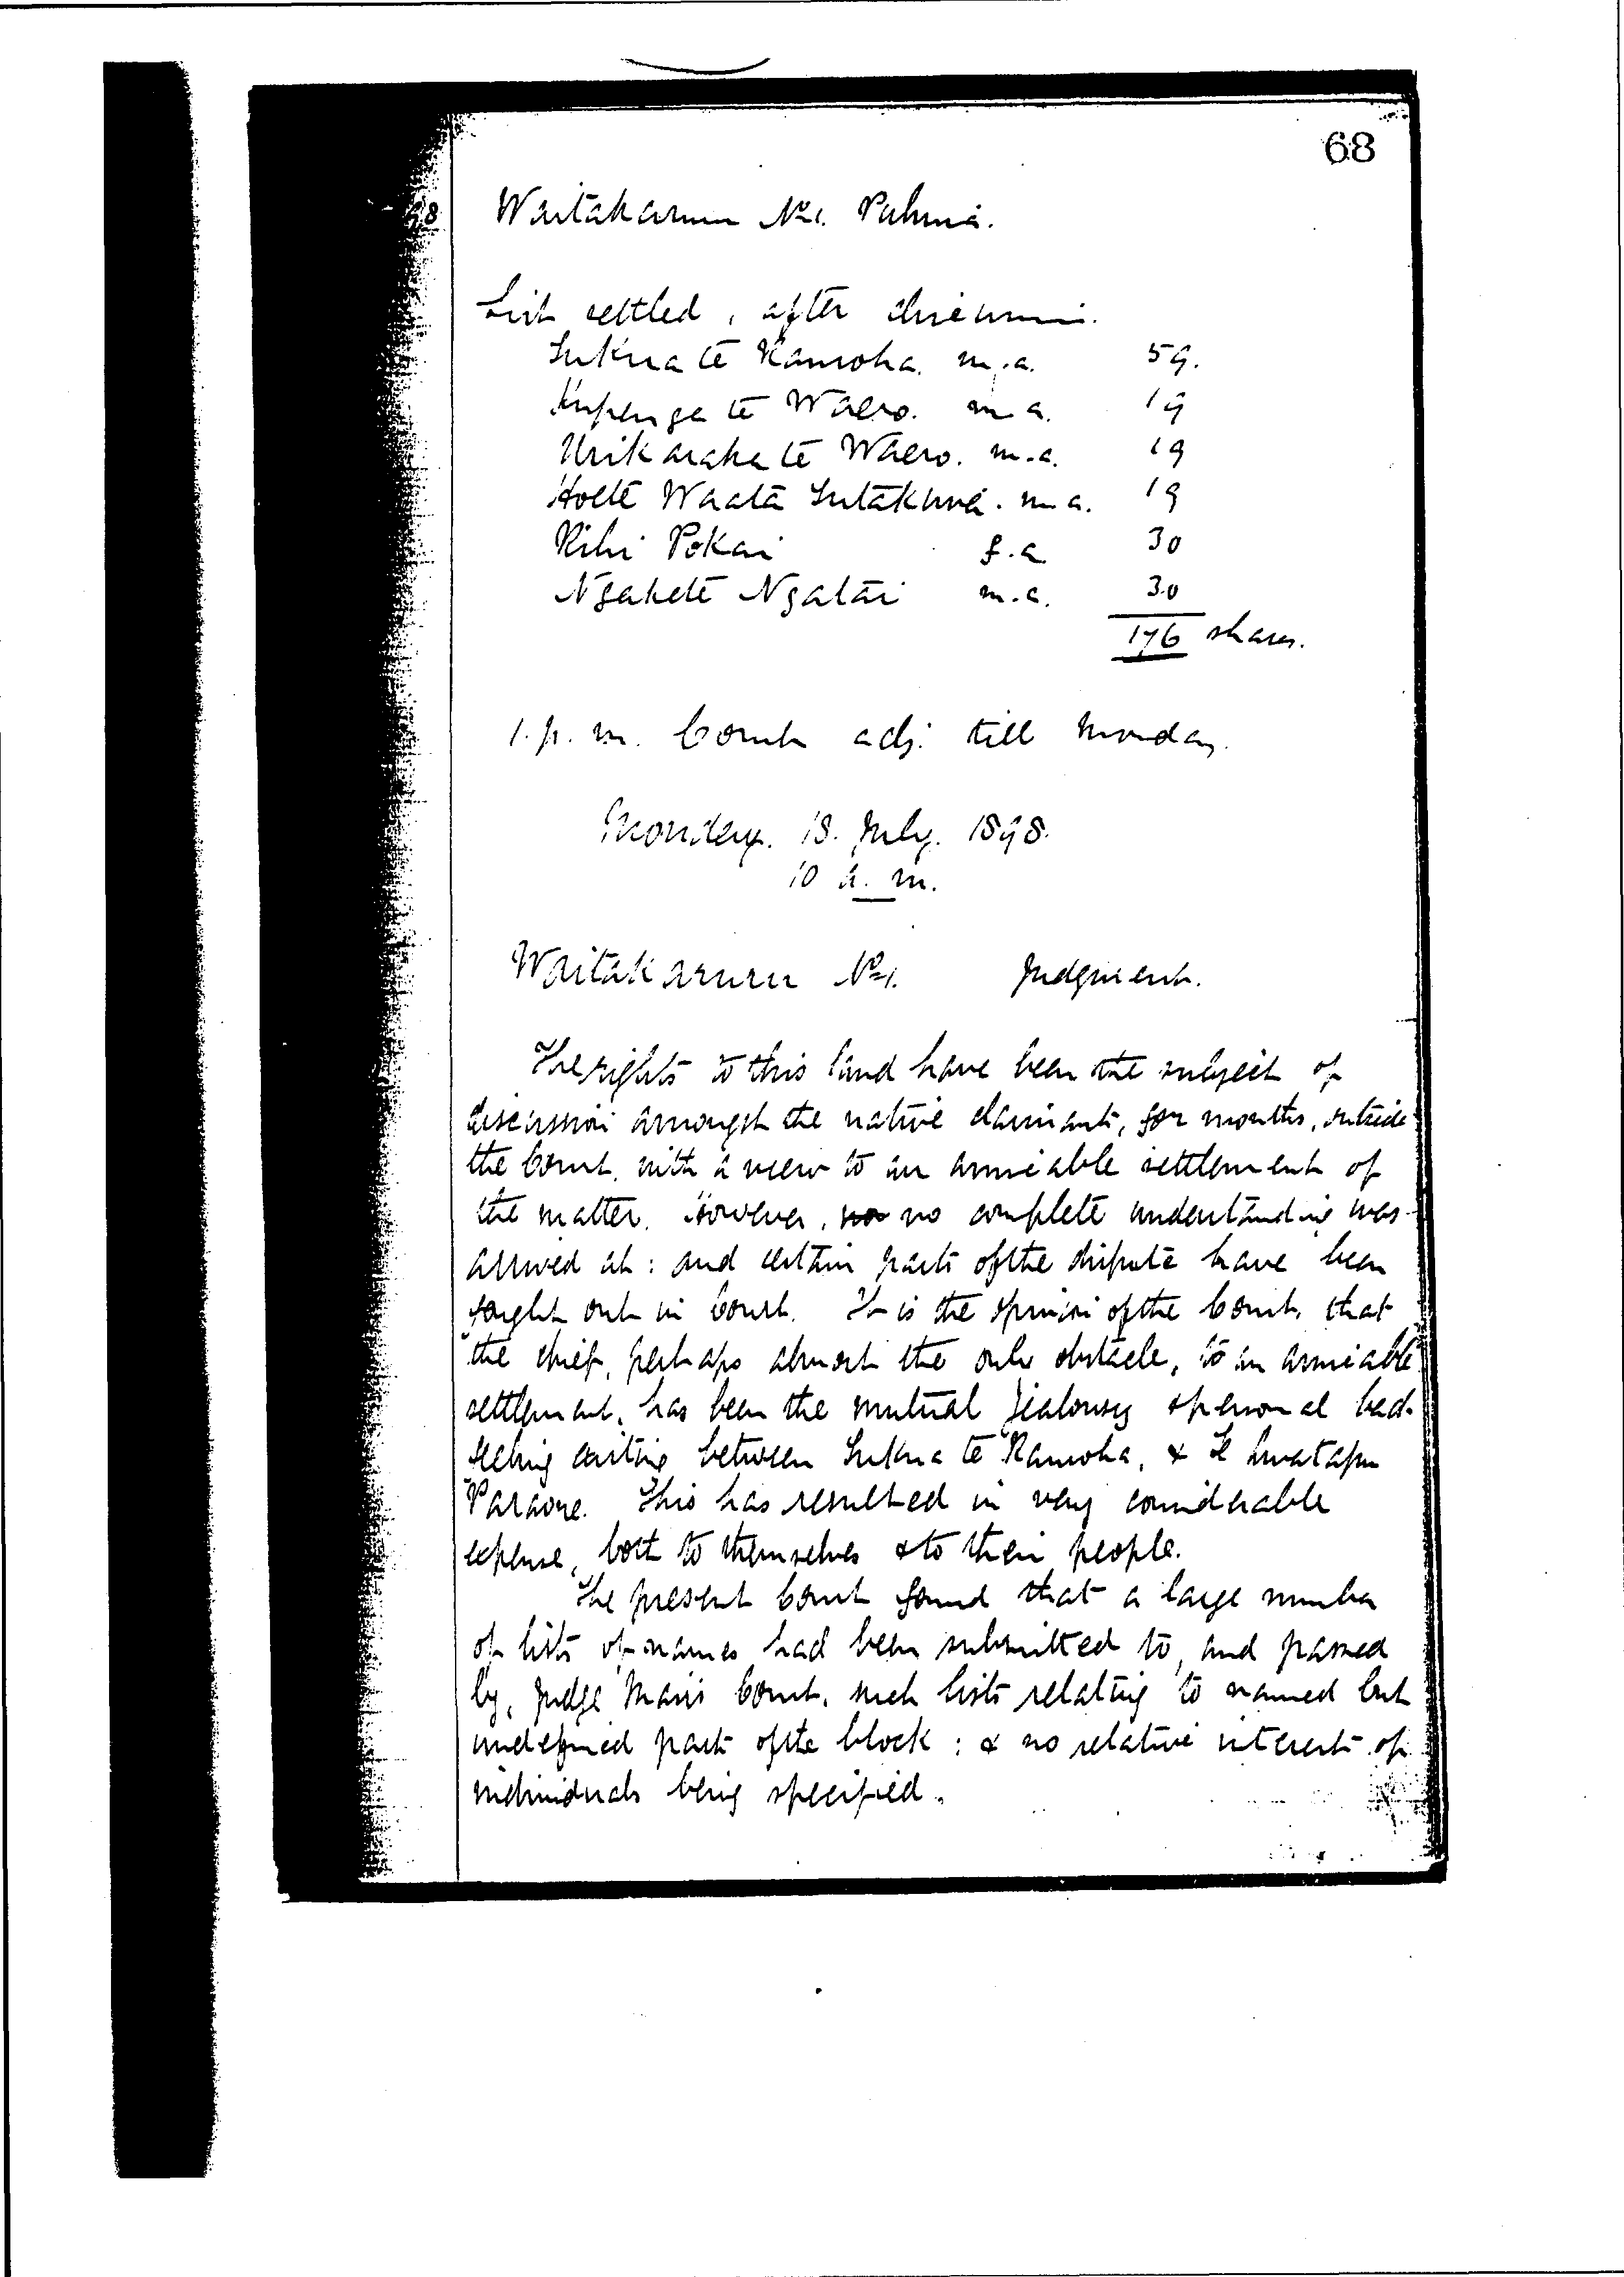 68
98
Waitakaruru No 1. Pahuia.
List settled, after discussion.
Tukua te Rauroha. m.a. 59.
Kupenga te Waero. m a. 19
Urikaraka te Waero. m.a. 19
Hoete Waata Tutakura. m a. 19
Rihi Pokai f.a 30
Ngakete Ngatai m.a. 30
176 shares.
1. p. m. Court adj. till Monday.
Monday. 18. July. 1898.
10 a. m.
Waitakaruru No 1. Judgment.
The rights to this land have been the subject of
discussion amongst the native claimants, for months, outside
the Court, with a view to an amicable settlement of
the matter. However, no no complete understanding was
arrived at: and certain parts of the dispute have been
fought out in Court. It is the opinion of the Court, that
the chief, perhaps almost the only obstacle, to an amicable
settlement, has been the mutual jealousy & personal bad-
feeling existing between Tukua te Rauroha, & Te
Paraone. This has resulted in very considerable
expense, both to themselves & to their people.
The present Court found that a large number
of lists of names had been submitted to, and passed
by, Judge Mair's Court, such lists relating to named but
undefined parts of the block: & no relative interests of
individuals being specified.